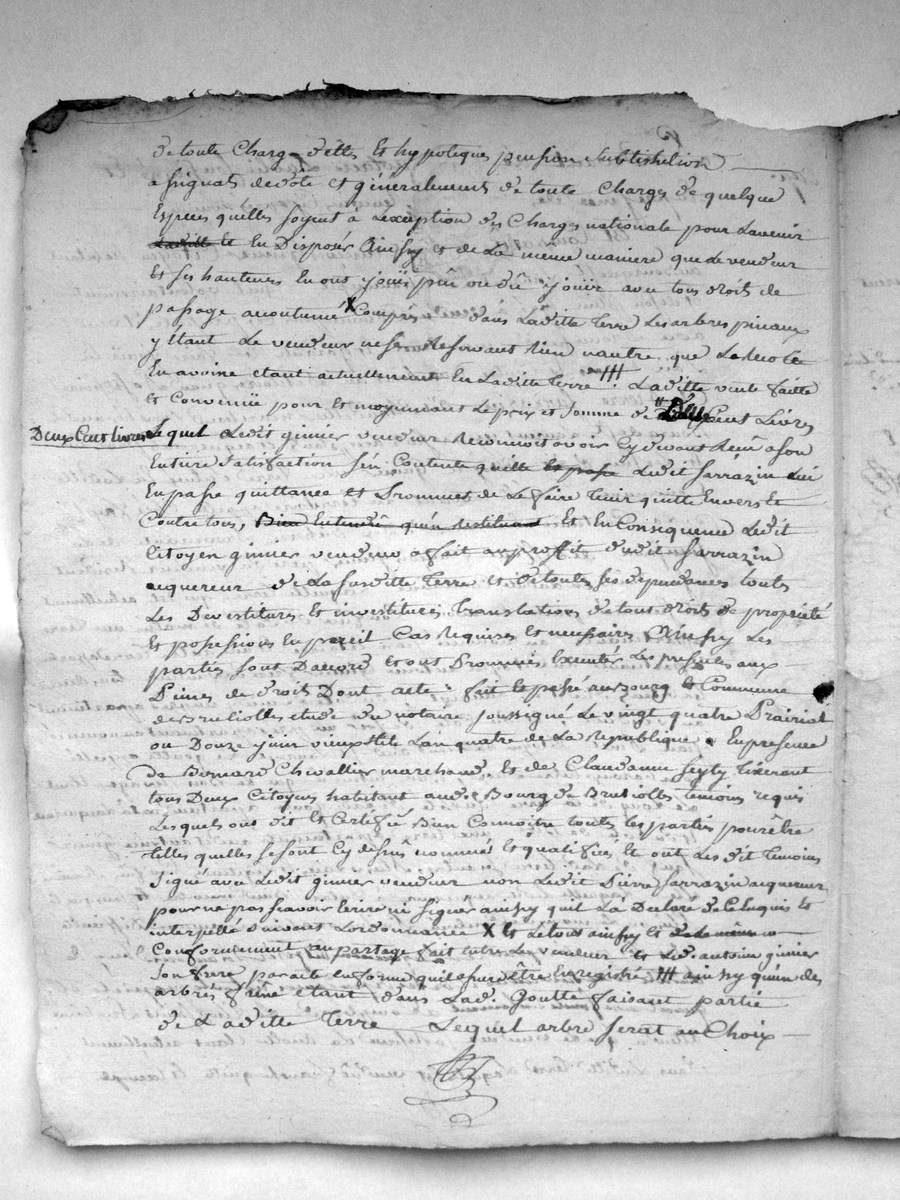 de toute Charge dette et hypoteques pension substitution
assignat de dote et generalement de toute Charges de quelque
Espece quelles soyent a Lexception des Charges nationale pour Lavenir
Laditte et En Disposér Ainsy et de La même maniere que Le vendeur
Et ses hauteurs En ont joüis pû ou dû jouir avec tous droit de
passage accoutumé X Compris dans Laditte terre Les arbres
y Etant Le vendeur ne se Reservant Rien nautre que La Recolte
En avoine Etant actuellement En Laditte terre #. Laditte vente faitte
et Convenüe pour et moyennant Le prix et somme de " Deux Cent Livres
Deux Cent livres Lequel Ledit ginier vendeur Reconnoit avoir Cy devant Reçû a son
Entiere satisfaction sen Contente quitte Ledit Sarrazin Lui
En passe quittance et Prommet de Le faire tenir quitte Envers Et
Contre tous, Bien Entendu quen Restituant Et En Consequence Ledit
Citoyen ginier vendeur a fait au proffit dudit Sarrazin
aquereur de La susditte terre et de toutes ses dependances touts
Les Devestiture et investitures, translations de tous droits de propriété
Et possessions En pareil Cas Requises Et necessaires Ainsy Les
parties sont Daccord Et ont Prommis Executer Les presentes aux
Peines de droit Dont acte : fait Et passé au Bourg et Commune
de Brulliolles etude du notaire soussigné Le vingt quatre Prairial
ou Douze juin vieux stile Lan quatre de La Republique . En presence
de Bernard Chevallier marchand, et de Claude Tixerant
tous Deux Citoyens habitant audit Bourg de Brulliolles temoins requis
Lesquels ont dit Et Certifié Bien Connoitre toutes les parties pour être
telles quelles se sont Cy dessus nommé Et qualifiés, Et ont Les dit temoins
signé avec Ledit ginier vendeur non Ledit Pierre Sarrazin aquereur
pour ne pas savoir Ecrire ni signer ainsy quil La Declaré de Ce Enquis Et
interpellé suivant Lordonnance X Et Le tout ainsy et de La même
Conformement au partage fait entre Le vendeur et Led. antoine ginier
son frere # ainsy qu'un des
arbres frêne etant dans Lad. Goutte faisant partie
de Laditte terre Lequel arbre serat au Choix